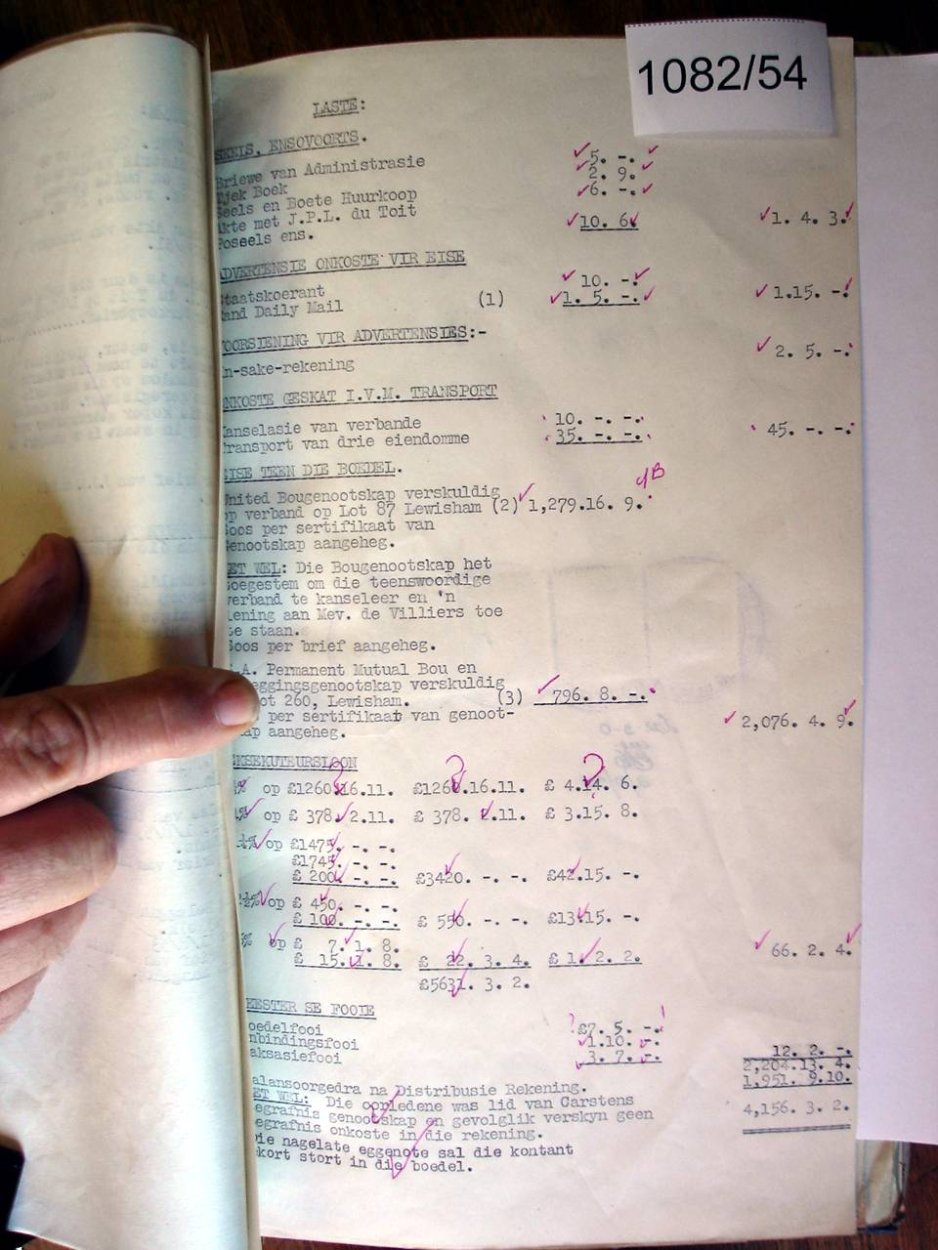 1082/54
LASTE:
SEELS, ENSOVOORTS.
Briewe van Administrasie 5. -.
Tjek Boek 2. 9.
Seels en Boete Huurkoop 6. -.
Akte met J.P.L. du Toit
Poseels ens. 10. 6. 1. 4. 3.
ADVERTENSIE ONKOSTE VIR EISE
Staatskoerant 10. -.
Rand Daily Mail (1) 1. 5. -. 1.15. -.
VOORSIENING VIR ADVERTENSIES:-
In-sake-rekening 2. 5. -.
ONKOSTE GESKAT I.V.M. TRANSPORT
Kanselasie van verbande 10. -. -.
Transport van drie eiendomme 35. -. -. 45. -. -.
EISE TEEN DIE BOEDEL.
United Bougenootskap verskuldig
op verband op Lot 87 Lewisham (2) 1,279.16. 9.
Soos per sertifikaat van
Genootskap aangeheg.
LET WEL: Die Bougenootskap het
toegestem om die teenswoordige
verband te kanseleer en 'n
Lening aan Mev. de Villiers toe
te staan.
Soos per brief aangeheg.
S.A. Permanent Mutual Bou en
eggingsgenootskap verskuldig
ot 260, Lewisham. (3) 796. 8. -.
per sertifikaat van genoot-
ap aangeheg. 2,076. 4. 9.
EKSEKUTEURSLOON
% op £1260.16.11. £1260.16.11. £ 4.14. 6.
% op £ 378. 2.11. £ 378. 2.11. £ 3.15. 8.
% op £1475. -. -.
£1745. -. -.
£ 200. -. -. £3420. -. -. £42.15. -.
½% op £ 450. -. -.
£ 100. -. -. £ 550. -. -. £13.15. -.
% op £ 7. 1. 8.
£ 15. 1. 8. £ 22. 3. 4. £ 1. 2. 2. 66. 2. 4.
£5631. 3. 2.
MEESTER SE FOOIE
Boedelfooi £7. 5. -.
Inbindingsfooi 1.10. -.
Taksasiefooi 3. 7. -. 12. 2. -.
2,204.13. 4.
Balansoorgedra na Distribusie Rekening. 1,951. 9.10.
LET WEL: Die oorledene was lid van Carstens
Begrafnis genootskap en gevolglik verskyn geen 4,156. 3. 2.
begrafnis onkoste in die rekening.
Die nagelate eggenote sal die kontant
tekort stort in die boedel.